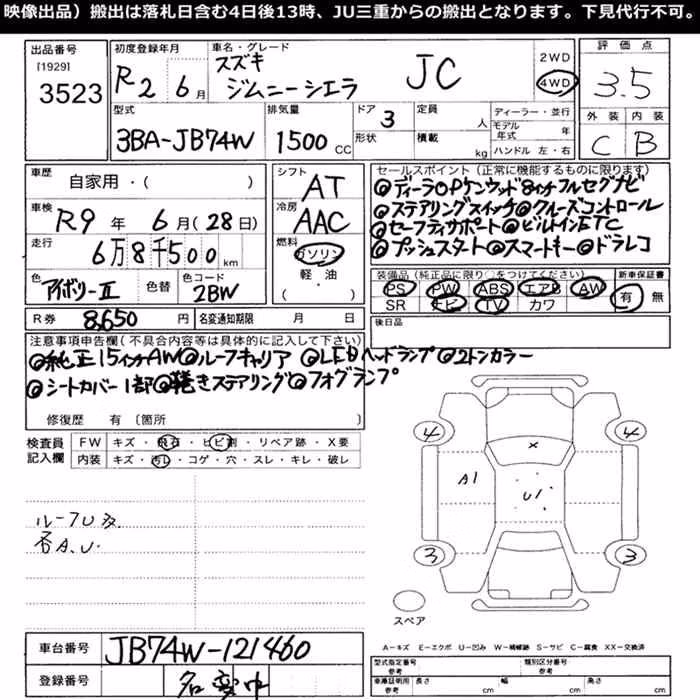 映像出品）搬出は落札日含む4日後13時、JU三重からの搬出となります。下見代行不可。
出品番号
[1929]
3523
初度登録年月
R2 6月
車名・グレード
スズキ
ジムニーシエラ JC
2WD
4WD
評価点
3.5
型式
3BA-JB74W
排気量
1500 CC
ドア
3
形状
定員
人
積載
kg
ディーラー・並行
モデル年式 年
ハンドル 左・右
外装 内装
C B
車歴
自家用・( )
車検
R9年 6月(28日)
走行
6万8千500 km
色
アイボリーⅡ
色替
色コード
2BW
シフト
AT
冷房
AAC
燃料
ガソリン
軽・油
( ・ )
セールスポイント（正常に機能するものに限ります）
◎ディーラOPケンウッド8インチフルセグナビ
◎ステアリングスイッチ◎クルーズコントロール
◎セーフティサポート◎ビルトインETC
◎プッシュスタート◎スマートキー◎ドラレコ
装備品（純正品に限り○をつけてください）
PS PW ABS エアB AW
SR ナビ TV カワ
新車保証書
有 無
R券 8,650 円
名変通知期限 月 日
後日品
注意事項申告欄（不具合内容等は具体的に記入して下さい）
◎純正15インチAW◎ルーフキャリア ◎LEDヘッドランプ◎2トンカラー
◎シートカバー1部◎巻きステアリング◎フォグランプ
修復歴 有〔箇所 〕
検査員記入欄
FW キズ・飛石・ヒビ割・リペア跡・X要
内装 キズ・汚レ・コゲ・穴・スレ・キレ・破レ
ルーフU及
各A.U.
4 4
X
A1
U1
3 3
スペア
車台番号 JB74W-121460
登録番号 名変中
A－キズ E－エクボ U－凹み W－補修跡 S－サビ C－腐食 XX－交換済
型式指定番号
参考
類別区分番号
参考
車庫証明用
参考
長さ cm
幅 cm
高さ cm